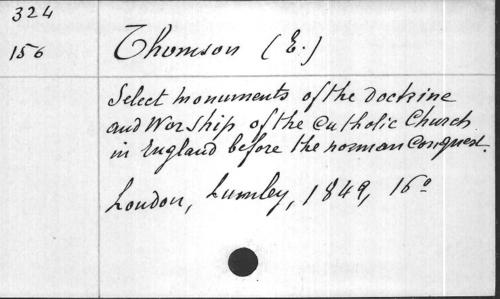 324
156 Thomson (E.)
Select monuments of the Doctrine
and Worship of the Catholic Church
in England before the norman Conquest.
London, Lumley, 1849, 16º